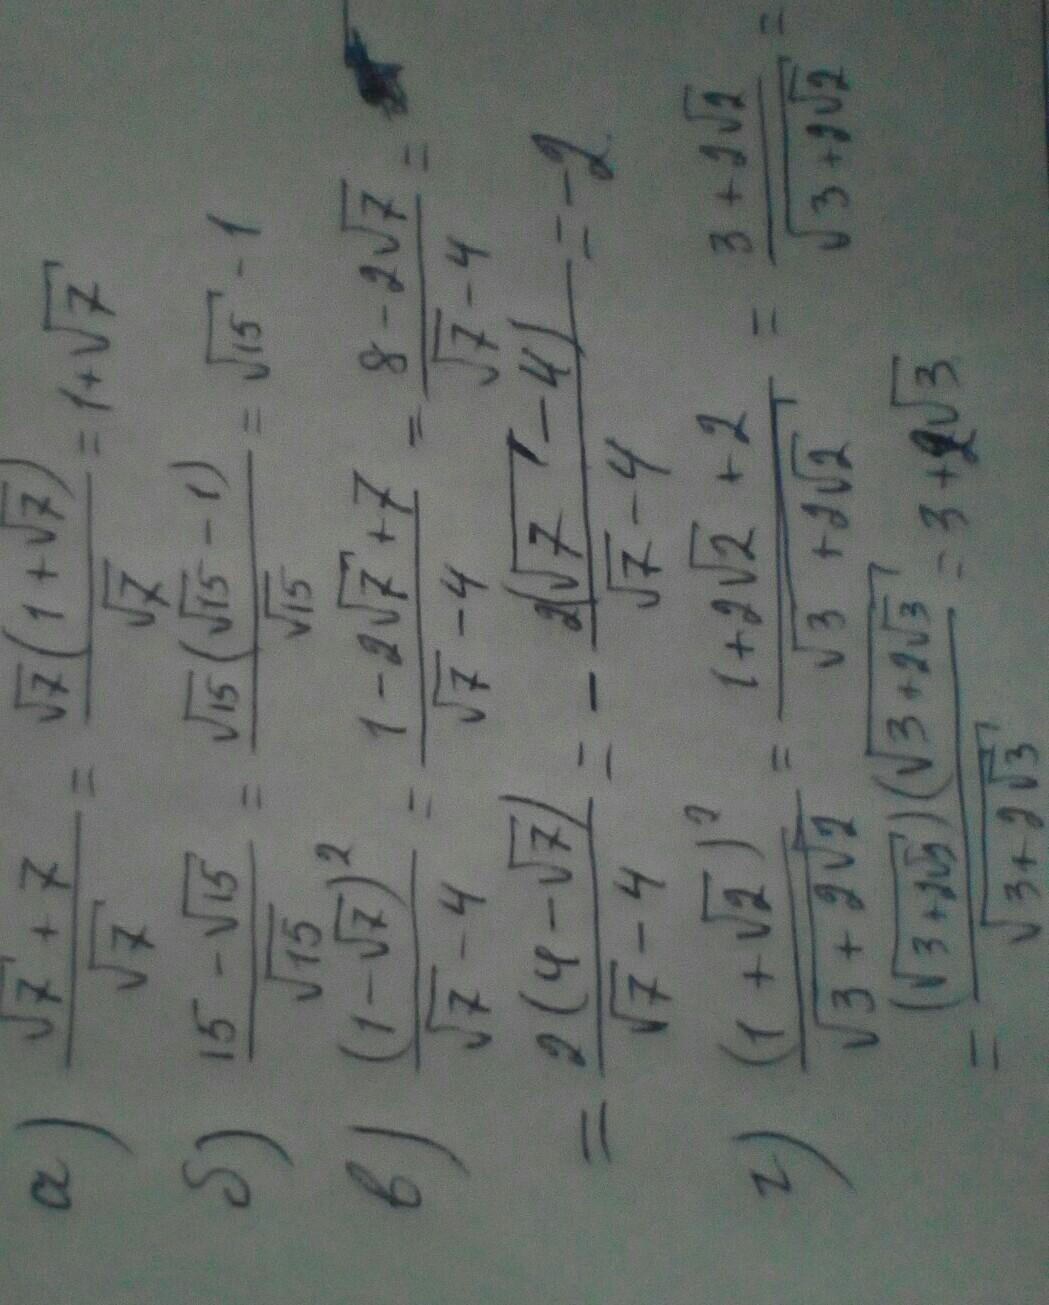 а) (√7 + 7)/√7 = √7(1 + √7)/√7 = 1+√7
б) (15 - √15)/√15 = √15(√15 - 1)/√15 = √15 - 1
в) (1 - √7)²/(√7 - 4) = (1 - 2√7 + 7)/(√7 - 4) = (8 - 2√7)/(√7 - 4) =
= 2(4 - √7)/(√7 - 4) = - 2(√7 - 4)/(√7 - 4) = -2
г) (1 + √2)²/√(3 + 2√2) = (1 + 2√2 + 2)/√(3 + 2√2) = (3 + 2√2)/√(3 + 2√2) =
= (√(3+2√3))(√(3+2√3))/√(3+2√3) = 3 + 2√3